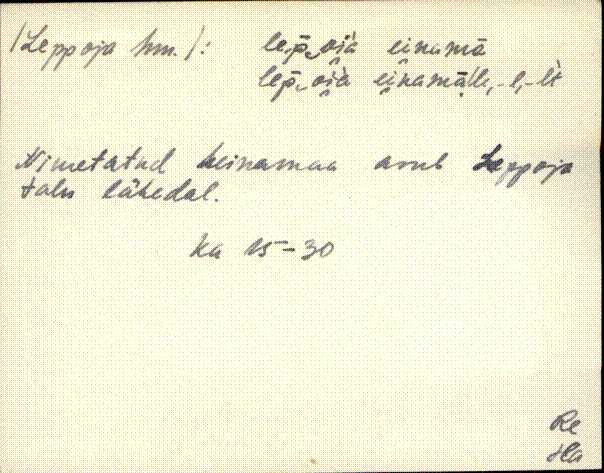 /Leppoja hm./: lep̄ oi̯a ei̯namā
lep̄ oi̯a ei̯namāle, -l, -lt
Nimetatud heinamaa asub Leppoja
talu lähedal.
ka 15-30
Re
Ha